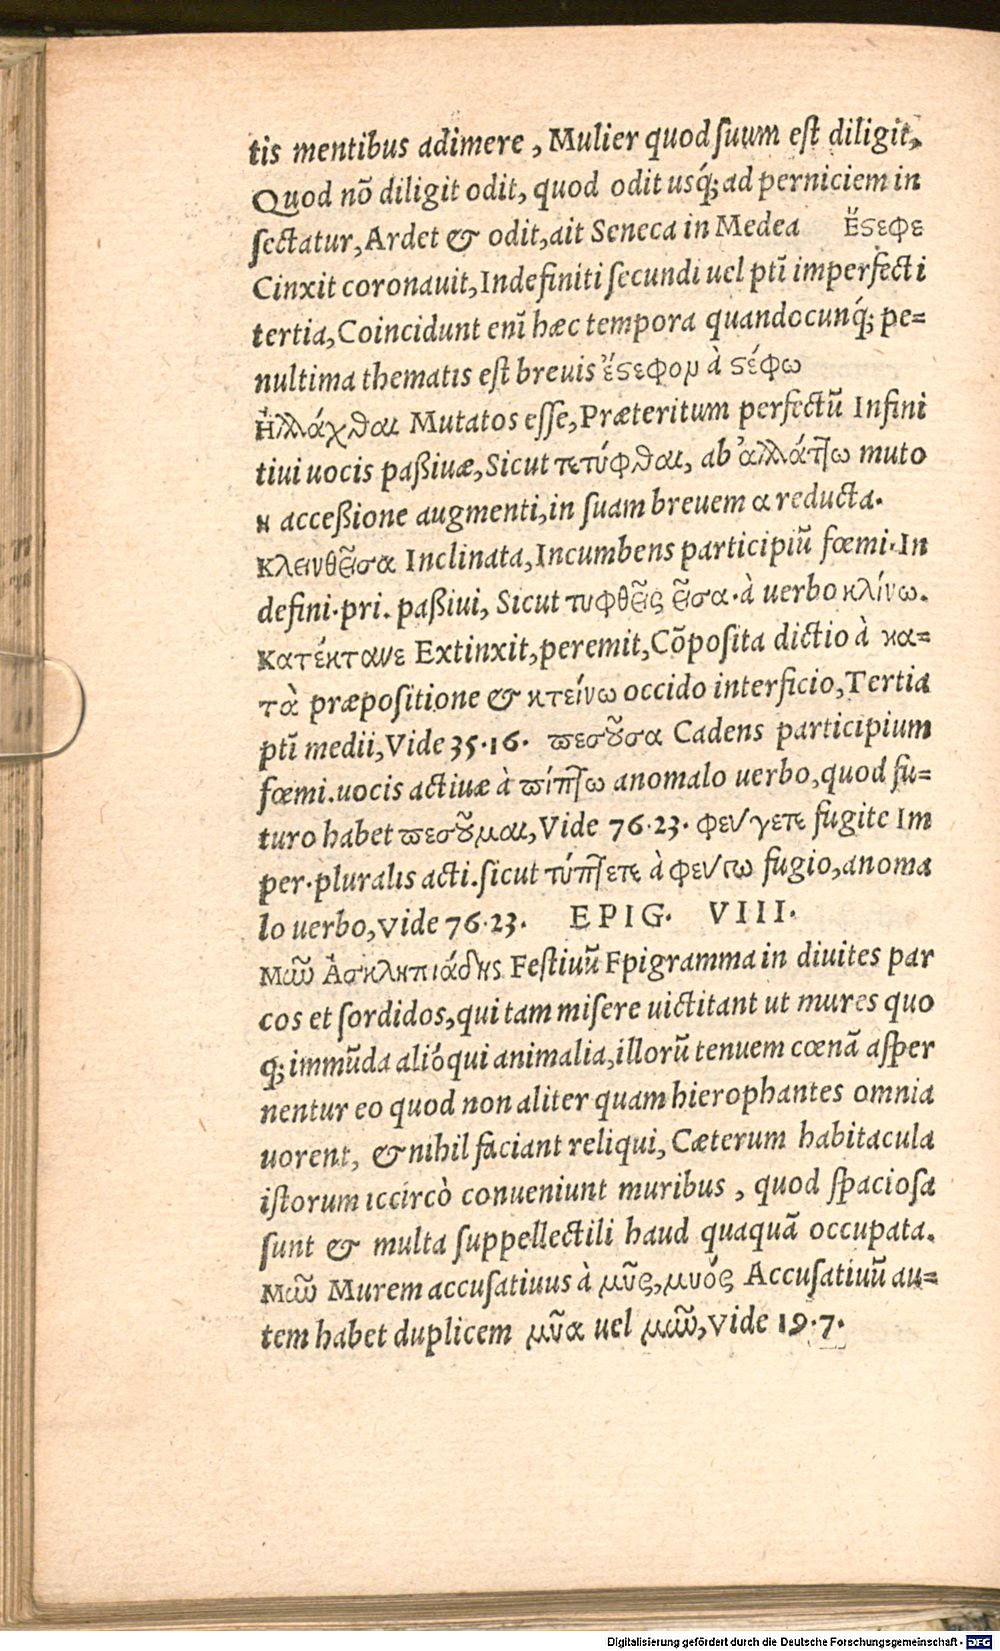 tis mentibus adimere, Mulier quod ſuum eſt diligit,
Quod nõ diligit odit, quod odit usq́; ad perniciem in
ſectatur, Ardet & odit, ait Seneca in Medea Ἔϛεφε
Cinxit coronauit, Indefiniti ſecundi uel ptĩ imperfecti
tertia, Coincidunt enĩ hæc tempora quandocunq́; pe=
nultima thematis eſt breuis ἔϛεφον à ϛέφω
Ἠλλάχθαι Mutatos eſſe, Præteritum perfectũ Infini
tiui uocis paßiuæ, Sicut τετύφθαι, ab ἀλλάτ]ω muto
η acceßione augmenti, in ſuam breuem α reducta.
Κλεινθεῖσα Inclinata, Incumbens participiũ fœmi. In
defini. pri. paßiui, Sicut τυφθεῖς εῖσα. à uerbo κλίνω.
Κατέκτανε Extinxit, peremit, Cõpoſita dictio à κα=
τὰ præpoſitione & κτείνω occido interficio, Tertia
ptĩ medii, Vide 35.16. ϖεσȣ͂σα Cadens participium
fœmi. uocis actiuæ à ϖίπ]ω anomalo uerbo, quod fu=
turo habet ϖεσȣ͂μαι, Vide 76.23. φεύγετε fugite Im
per. pluralis acti. ſicut τύπ]ετε à φεύγω fugio, anoma
lo uerbo, vide 76.23. EPIG. VIII.
Μῶῦ Ἀσκληπιάδης Feſtiuũ Fpigramma in diuites par
cos et ſordidos, qui tam miſere uictitant ut mures quo
q́; immũda alióqui animalia, illorũ tenuem cœnã aſper
nentur eo quod non aliter quam hierophantes omnia
uorent, & nihil faciant reliqui, Cæterum habitacula
iſtorum iccircò conueniunt muribus, quod ſpacioſa
ſunt & multa ſuppellectili haud quaquã occupata.
Μῶῦ Murem accuſatiuus à μῦς, μυός Accuſatiuũ au=
tem habet duplicem μῦα uel μῶῦ, vide 19.7.
Digitalisierung gefördert durch die Deutsche Forschungsgemeinschaft - DFG